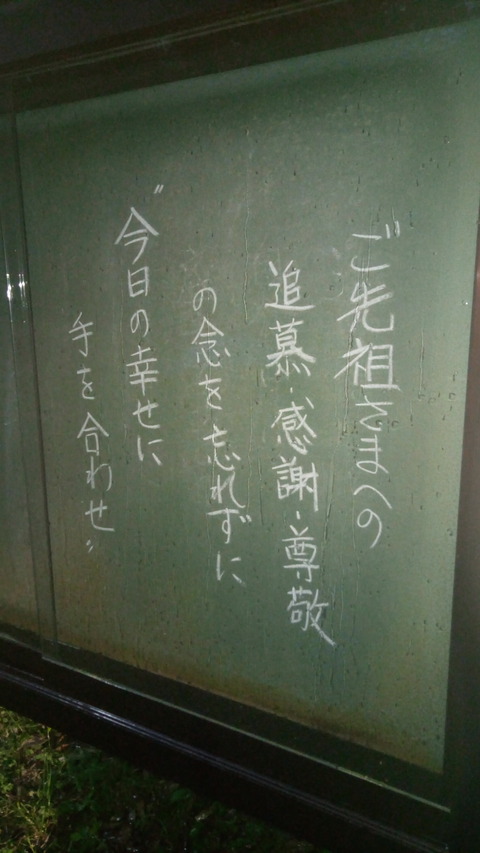 ご先祖さまへの
追慕・感謝・尊敬
の念を忘れずに
“今日の幸せに
手を合わせ”